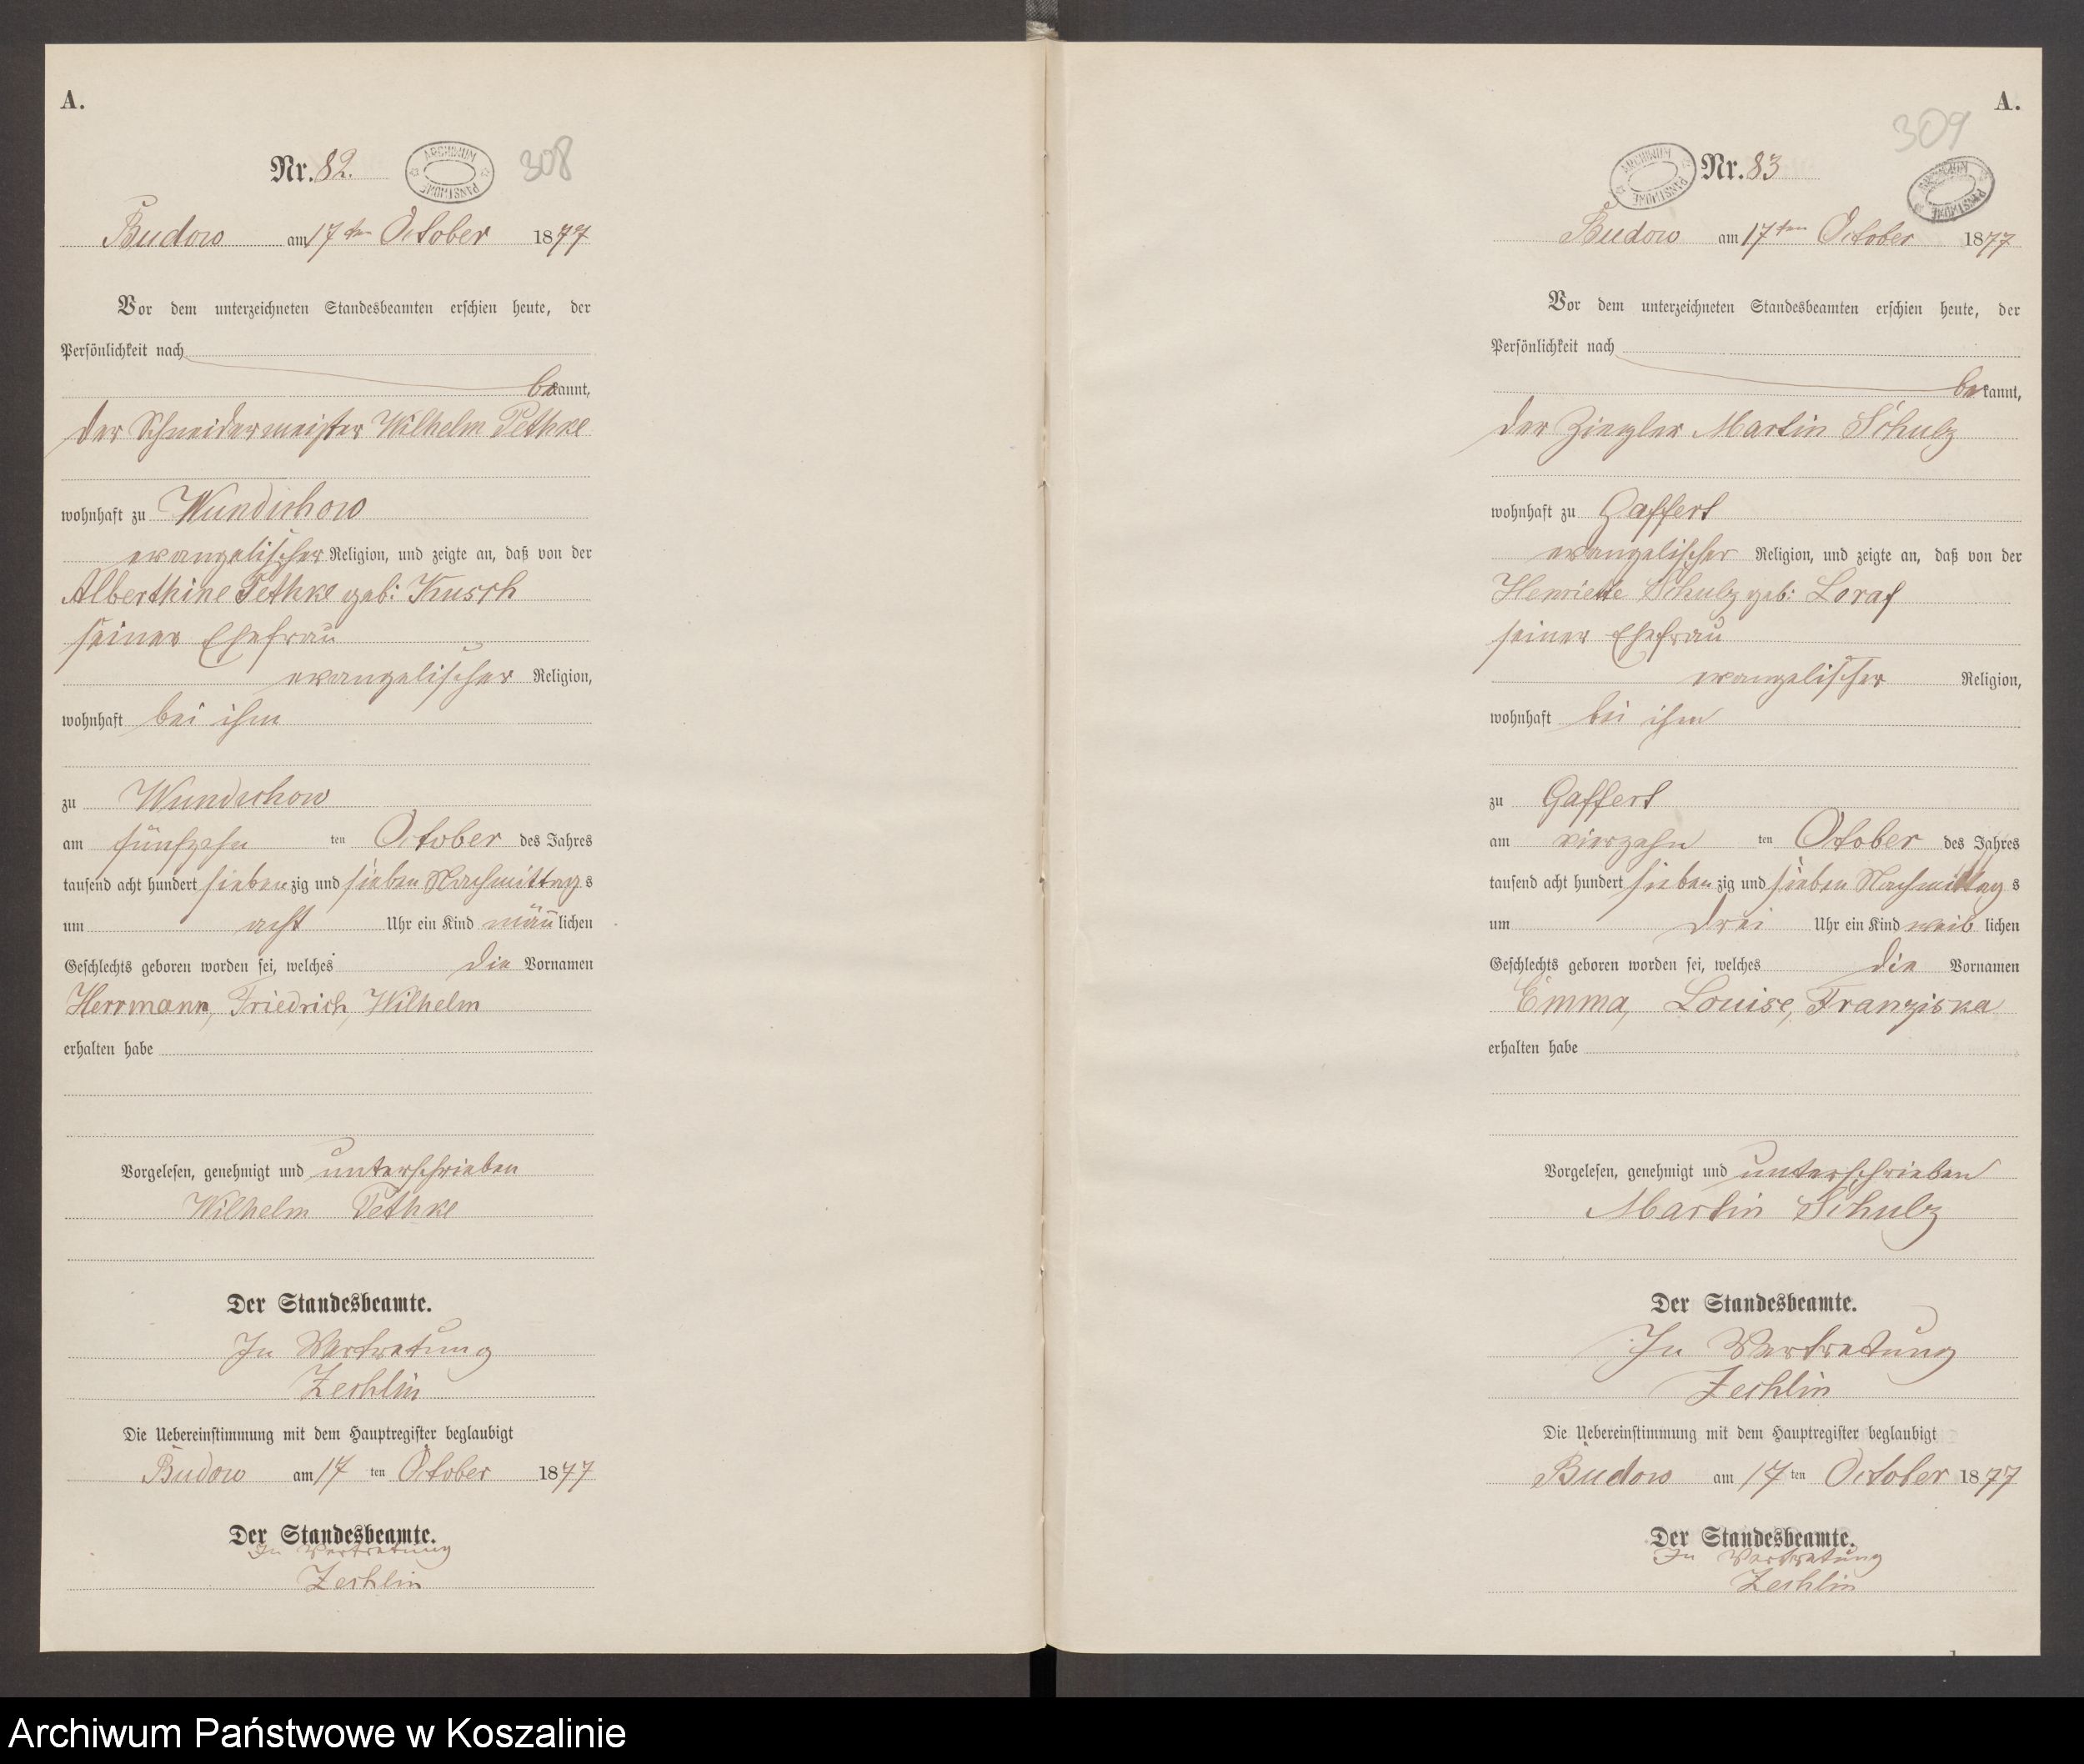 A.
Nr. 82.
ARCHIWUM PAŃSTWOWE
308
Budow am 17ten October 1877
Vor dem unterzeichneten Standesbeamten erschien heute, der
Persönlichkeit nach
bekannt,
der Schneidermeister Wilhelm Pethke
wohnhaft zu Wundichow
evangelischer Religion, und zeigte an, daß von der
Alberthine Pethke geb: Kusch
seiner Ehefrau
evangelischer Religion,
wohnhaft bei ihm
zu Wundichow
am fünfzehn ten October des Jahres
tausend acht hundert siebenzig und sieben Nachmittags
um acht Uhr ein Kind männlichen
Geschlechts geboren worden sei, welches die Vornamen
Herrmann, Friedrich, Wilhelm
erhalten habe
Vorgelesen, genehmigt und unterschrieben
Wilhelm Pethke
Der Standesbeamte.
In Vertretung
Zechlin
Die Uebereinstimmung mit dem Hauptregister beglaubigt
Budow am 17 ten October 1877
Der Standesbeamte.
In Vertretung
Zechlin
A.
309
ARCHIWUM PAŃSTWOWE
Nr. 83
ARCHIWUM PAŃSTWOWE
Budow am 17ten October 1877
Vor dem unterzeichneten Standesbeamten erschien heute, der
Persönlichkeit nach
bekannt,
der Ziegler Martin Schulz
wohnhaft zu Gaffert
evangelischer Religion, und zeigte an, daß von der
Henriette Schulz geb: Loraf
seiner Ehefrau
evangelischer Religion,
wohnhaft bei ihm
zu Gaffert
am vierzehn ten October des Jahres
tausend acht hundert siebenzig und sieben Nachmittags
um drei Uhr ein Kind weiblichen
Geschlechts geboren worden sei, welches die Vornamen
Emma, Louise, Franziska
erhalten habe
Vorgelesen, genehmigt und unterschrieben
Martin Schulz
Der Standesbeamte.
In Vertretung
Zechlin
Die Uebereinstimmung mit dem Hauptregister beglaubigt
Budow am 17 ten October 1877
Der Standesbeamte.
In Vertretung
Zechlin
Archiwum Państwowe w Koszalinie